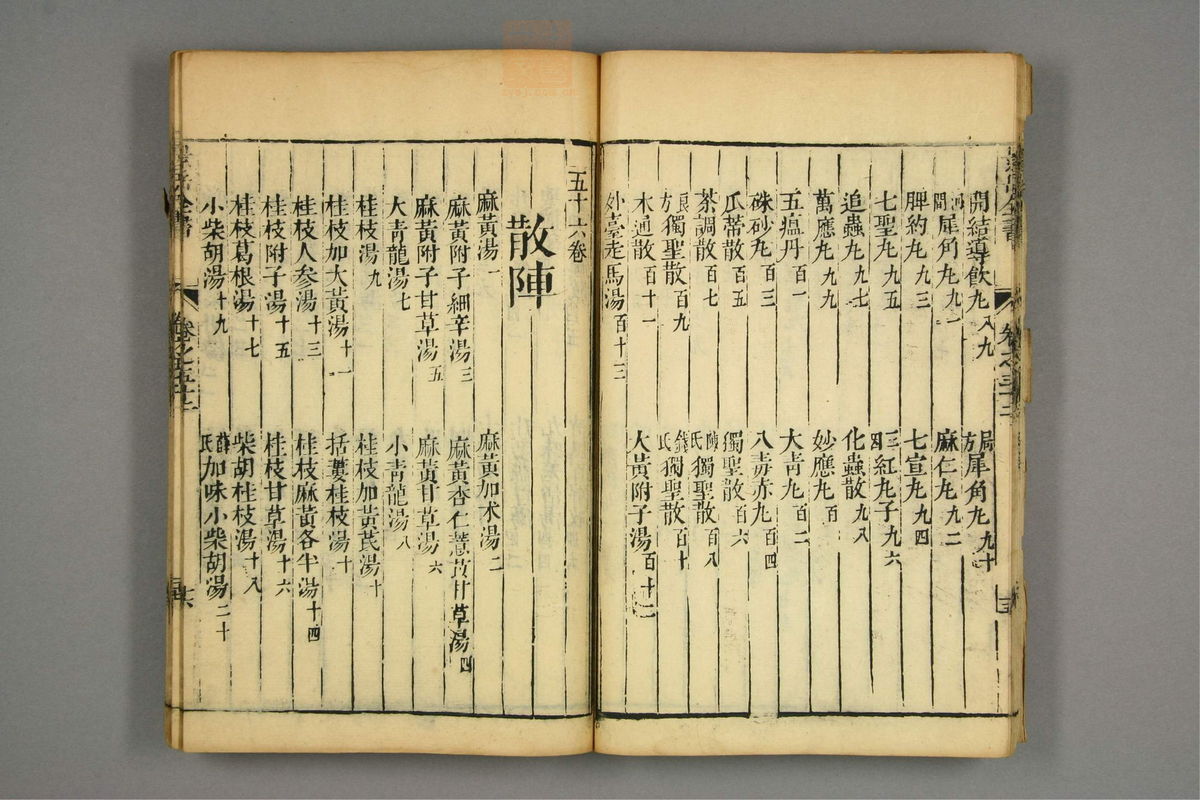 開結導飲丸 八九
局方犀角丸 九十
犀角丸 九一
麻仁丸 九二
脾約丸 九三
七宣丸 九四
七聖丸 九五
三四紅丸子 九六
追蟲丸 九七
化蟲散 九八
萬應丸 九九
妙應丸 百
五瘟丹 百一
大青丸 百二
硃砂丸 百三
八毒赤丸 百四
瓜蒂散 百五
獨聖散 百六
茶調散 百七
陳氏獨聖散 百八
良方獨聖散 百九
錢氏獨聖散 百十
木通散 百十一
大黃附子湯 百十二
外臺走馬湯 百十三
五十六卷
散陣
麻黃湯 一
麻黃加朮湯 二
麻黃附子細辛湯 三
麻黃杏仁薏苡甘草湯 四
麻黃附子甘草湯 五
麻黃甘草湯 六
大青龍湯 七
小青龍湯 八
桂枝湯 九
桂枝加黃芪湯 十
桂枝加大黃湯 十一
括蔞桂枝湯 十
桂枝人參湯 十三
桂枝麻黃各半湯 十四
桂枝附子湯 十五
桂枝甘草湯 十六
桂枝葛根湯 十七
柴胡桂枝湯 十八
小柴胡湯 十九
薛氏加味小柴胡湯 二十